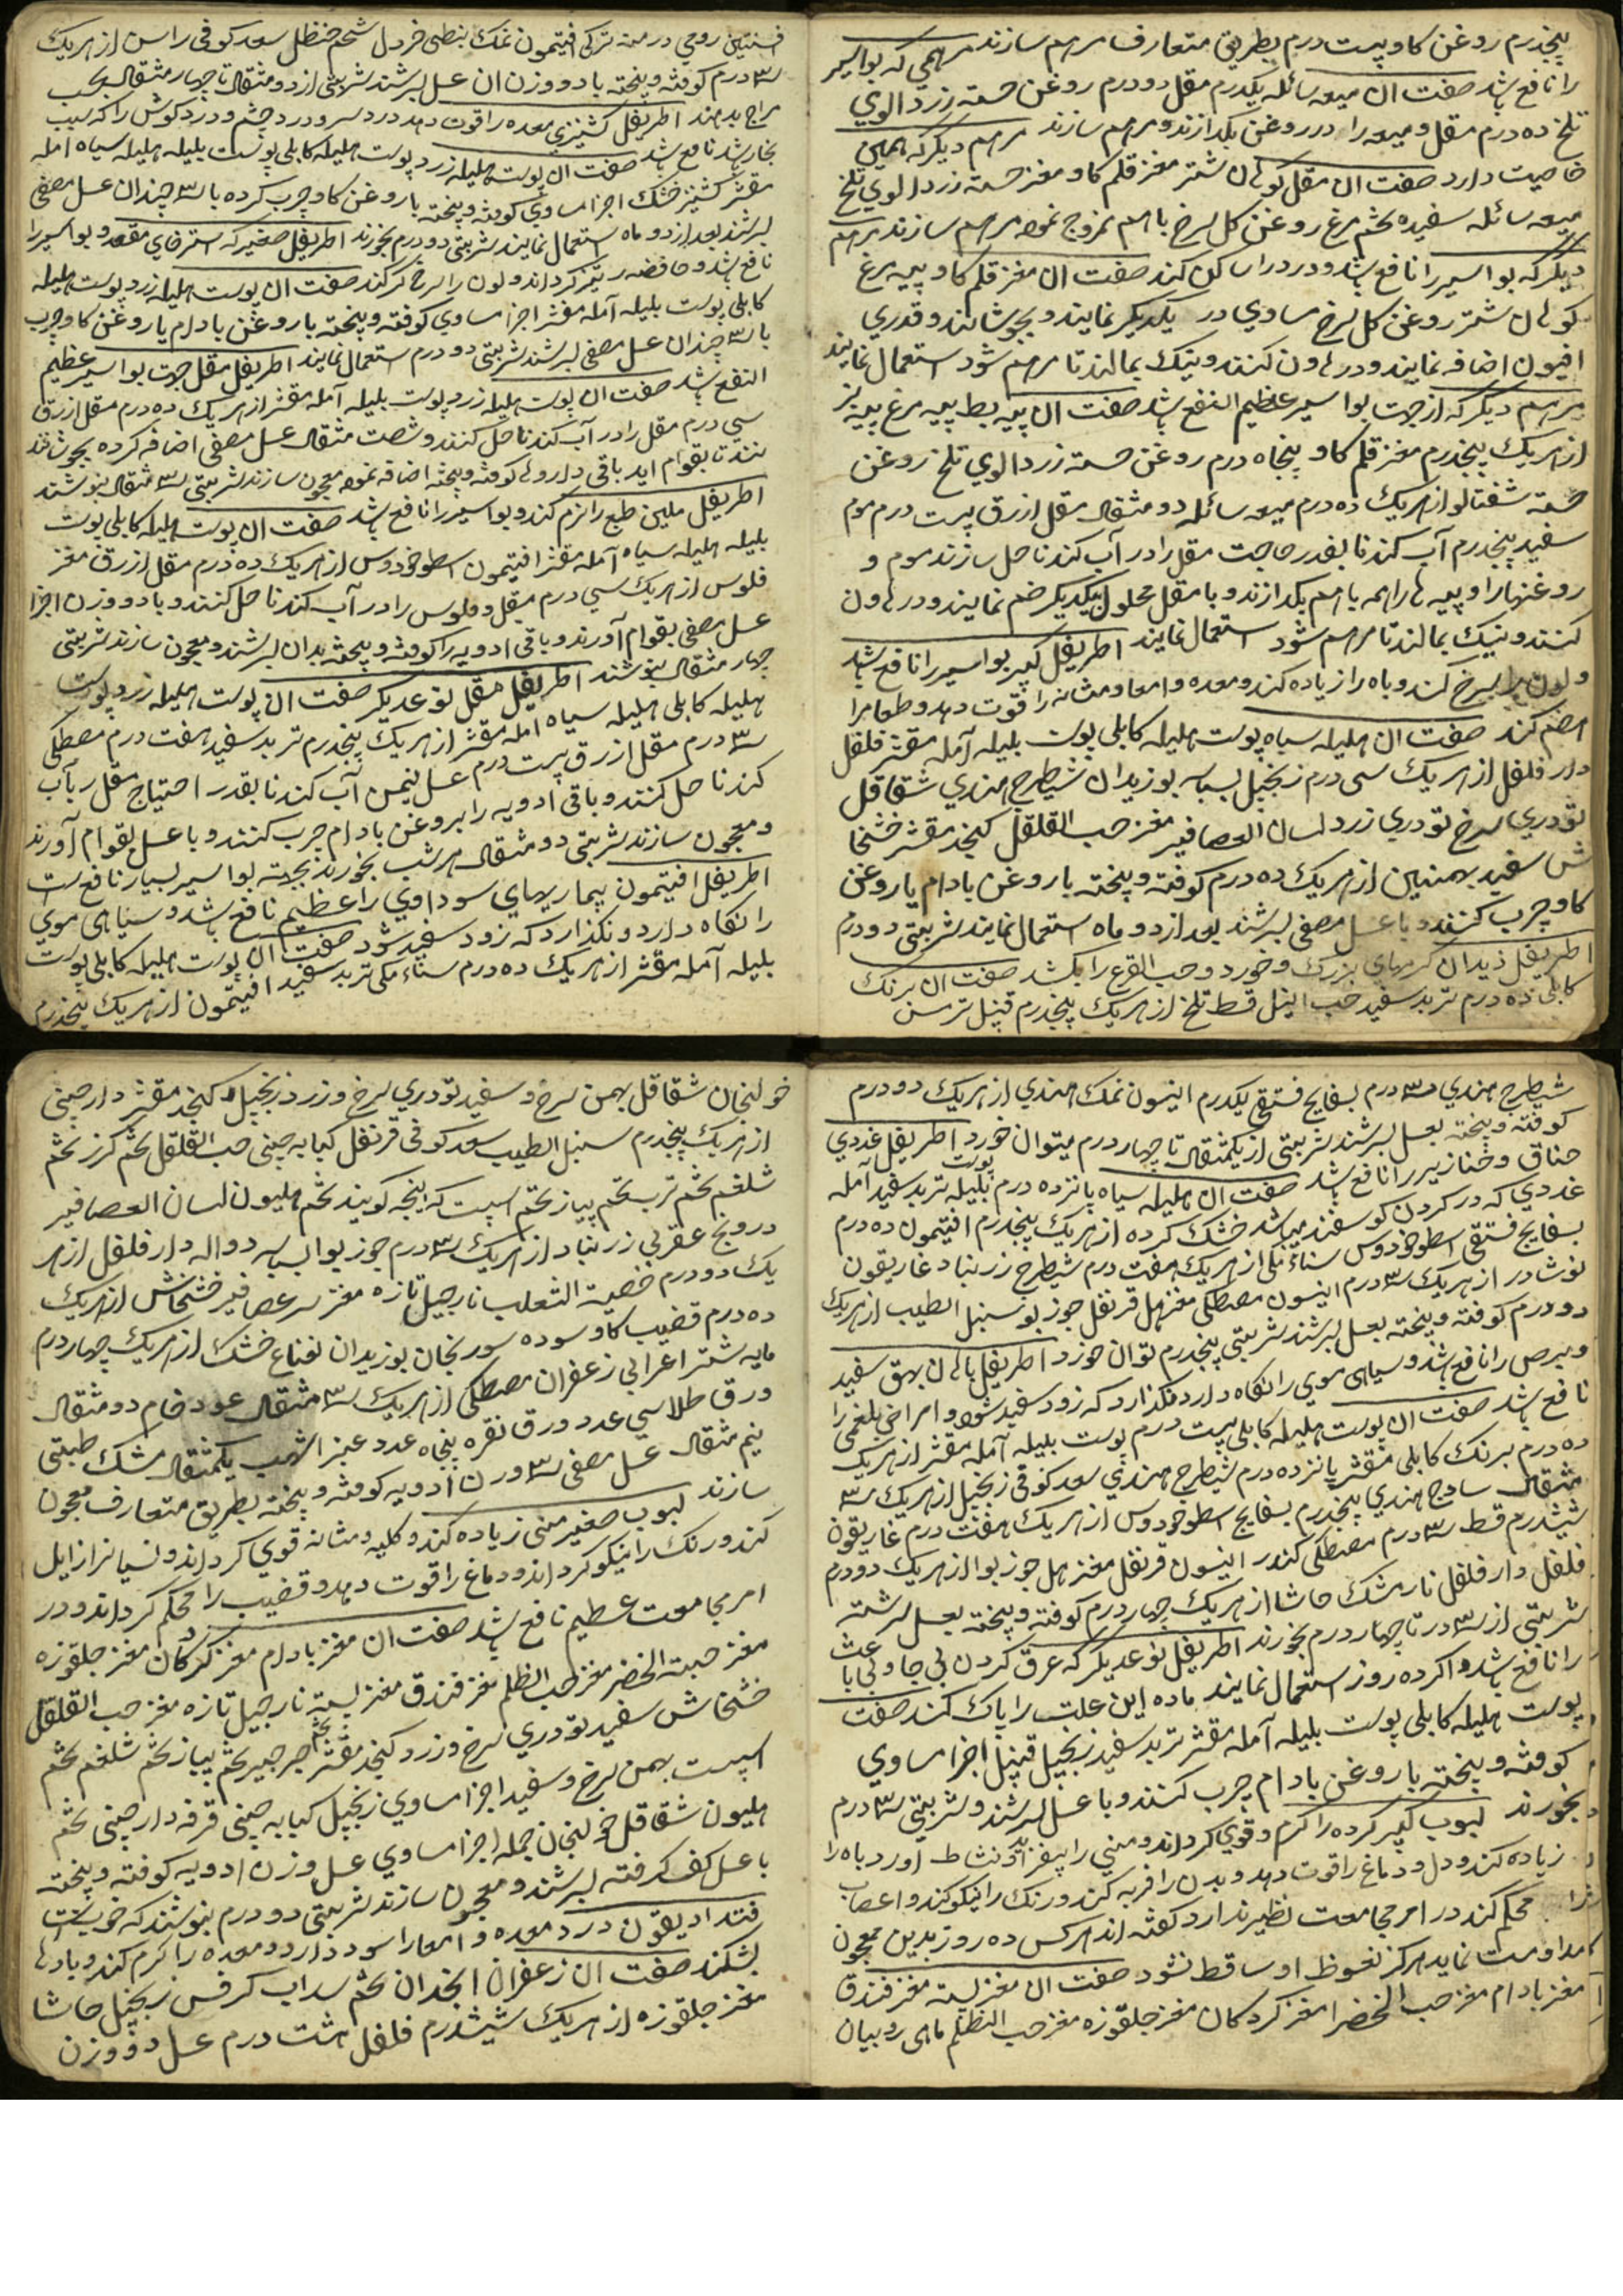 پنجدرم روغن کاو بیست درم بطریق متعارف مرهم سازند مرهمی که بواسیر
را نافع باشد صفت آن میعه سائله یکدرم مقل دو درم روغن خسته زردالوی
تلخ ده درم مقل و میعه را در روغن بکدازند و مرهم سازند مرهم دیکر که همین
خاصیت دارد صفت آن مقل کوهان شتر مغز قلم کاو مغز خسته زردالوی تلخ
میعه سائله سفیده تخم مرغ روغن کل سرخ باهم ممزوج نموده مرهم سازند مرهم
دیکر که بواسیر را نافع باشد و درد را ساکن کند صفت آن مغز قلم کاو پیه مرغ
کوهان شتر روغن کل سرخ مساوی در یکدیکر نمایند و بجوشانند و قدری
افیون اضافه نمایند و در هاون کنند و نیک بمالند تا مرهم شود استعمال نمایند
مرهم دیکر که از جهت بواسیر عظیم النفع باشد صفت آن پیه بط پیه مرغ پیه بز
از هریک پنجدرم مغز قلم کاو پنجاه درم روغن خسته زردالوی تلخ روغن
خسته شفتالو از هریک ده درم میعه سائله دو مثقال مقل ازرق بیست درم موم
سفید پنجدرم آب کندنا بقدر حاجت مقل را در آب کندنا حل سازند موم و
روغنها را و پیه ها را همه باهم بکدازند و با مقل محلول بیکدیکر ضم نمایند و در هاون
کنند و نیک بمالند تا مرهم شود استعمال نمایند اطریفل کبیر بواسیر را نافع باشد
و لون را سرخ کند و باه را زیاده کند و معده و امعا و مثانه را قوت دهد و طعام را
هضم کند صفت آن هلیله سیاه پوست هلیله کابلی پوست بلیله آمله مقشر فلفل
دار فلفل از هریک سی درم زنجبیل بسباسه بوزیدان شیطرج هندی شقاقل
تودری سرخ تودری زرد لسان العصافیر مغز حب القلقل کنجد مقشر خشخا
ش سفید بهمنین از هریک ده درم کوفته و پیخته با روغن بادام یا روغن
کاو چرب کنند و با عسل مصفی بسرشند بعد از دو ماه استعمال نمایند شربتی دو درم
اطریفل دیدان کرمهای بزرک و خورد و حب القرع را بکشد صفت آن برنک
کابلی ده درم تربد سفید حب النیل قسط تلخ از هریک پنجدرم قنبیل ترمس
افسنتین رومی درمنه ترکی افتیمون نمک نبطی خردل شحم حنظل سعد کوفی راسن از هریک
سه درم کوفته و پیخته با دو وزن آن عسل بسرشند شربتی از دو مثقال تا چهار مثقال بحسب
مزاج بدهند اطریفل کشنیزی معده را قوت دهد درد سر و درد چشم و درد کوش را که بسبب
بخار باشد نافع باشد صفت آن پوست هلیله زرد پوست هلیله کابلی پوست بلیله هلیله سیاه آمله
مقشر کشنیز خشک اجزا مساوی کوفته و پیخته با روغن کاو چرب کرده با سه چندان عسل مصفی
بسرشند بعد از دو ماه استعمال نمایند شربتی دو درم بخورند اطریفل صغیر که استرخای مقعد و بواسیر را
نافع باشد و حافظه را تیز کرداند و لون را سرخ کند صفت آن پوست هلیله زرد پوست هلیله
کابلی پوست بلیله آمله مقشر اجزا مساوی کوفته و پیخته با روغن بادام یا روغن کاو چرب
با سه چندان عسل مصفی بسرشند شربتی دو درم استعمال نمایند اطریفل مقل جهت بواسیر عظیم
النفع باشد صفت آن پوست هلیله زرد پوست بلیله آمله مقشر از هریک ده درم مقل ازرق
سی درم مقل را در آب کندنا حل کنند و شصت مثقال عسل مصفی اضافه کرده بجوشانند
تا بقوام آید باقی داروها کوفته و پیخته اضافه نموده معجون سازند شربتی سه مثقال بنوشند
اطریفل ملین طبع را نرم کند و بواسیر را نافع باشد صفت آن پوست هلیله کابلی پوست
بلیله هلیله سیاه آمله مقشر افتیمون اسطوخودوس از هریک ده درم مقل ازرق مغز
فلوس از هریک سی درم مقل و فلوس را در آب کندنا حل کنند و با دو وزن اجزا
عسل مصفی بقوام آورند و باقی ادویه را کوفته و پیخته بدان بسرشند و معجون سازند شربتی
چهار مثقال بنوشند اطریفل مقل نوع دیکر صفت آن پوست هلیله زرد پوست
هلیله کابلی هلیله سیاه آمله مقشر از هریک پنجدرم تربد سفید هفت درم مصطکی
سه درم مقل ازرق بیست درم عسل نیم من آب کندنا بقدر احتیاج مقل را بآب
کندنا حل کنند و باقی ادویه را بروغن بادام چرب کنند و با عسل بقوام آورند
و معجون سازند شربتی دو مثقال هر شب بخورند بجهت بواسیر بسیار نافع است
اطریفل افتیمون بیماریهای سوداوی را عظیم نافع باشد و سیاهی موی
را نکاه دارد و نکذارد که زود سفید شود صفت آن پوست هلیله کابلی پوست
بلیله آمله مقشر از هریک ده درم سناء مکی تربد سفید افتیمون از هریک پنجدرم
شیطرج هندی سه درم بسفایج فستقی یکدرم انیسون نمک هندی از هریک دو درم
کوفته و پیخته بعسل بسرشند شربتی از یکمثقال تا چهار درم میتوان خورد اطریفل غددی
خناق و خنازیر را نافع باشد صفت آن هلیله سیاه پانزده درم پوست بلیله تربد سفید آمله
غددی که در کردن کوسفند میباشد خشک کرده از هریک پنجدرم افتیمون ده درم
بسفایج فستقی اسطوخودوس سناء مکی از هریک هفت درم شیطرج زرنباد غاریقون
نوشادر از هریک سه درم انیسون مصطکی مغز هل قرنفل جوز بو سنبل الطیب از هریک
دو درم کوفته و پیخته بعسل بسرشند شربتی پنجدرم توان خورد اطریفل بالان بهق سفید
و برص را نافع باشد و سیاهی موی را نکاه دارد و نکذارد که زود سفید شود و امراض بلغمی را
نافع باشد صفت آن پوست هلیله کابلی بیست درم پوست بلیله آمله مقشر از هریک
ده درم برنک کابلی مقشر پانزده درم شیطرج هندی سعد کوفی زنجبیل از هریک سه
مثقال ساذج هندی پنجدرم بسفایج اسطوخودوس از هریک هفت درم غاریقون
ششدرم قسط سه درم مصطکی کندر انیسون قرنفل مغز هل جوز بوا از هریک دو درم
فلفل دار فلفل نارمشک حاشا از هریک چهار درم کوفته و پیخته بعسل سرشته
شربتی از سه درم تا چهار درم بخورند اطریفل نوع دیکر که عرق کردن بی جا و بی باعث
را نافع باشد و اکر ده روز استعمال نمایند ماده این علت را پاک کند صفت
پوست هلیله کابلی پوست بلیله آمله مقشر تربد سفید زنجبیل قنبیل اجزا مساوی
کوفته و پیخته با روغن بادام چرب کنند و با عسل بسرشند و شربتی سه درم
بخورند لبوب کبیر کرده را کرم و قوی کرداند و منی را بیفزاید و نشاط آورد باه را
زیاده کند و دل و دماغ را قوت دهد و بدن را فربه کند و رنک را نیکو کند و اعصاب
را محکم کند در امر مجامعت نظیر ندارد کفته اند هر کس ده روز بدین معجون
مداومت نماید هرکز نعوظ او ساقط نشود صفت آن مغز پسته مغز فندق
مغز بادام مغز حب الخضرا مغز کردکان مغز جلغوزه مغز حب الظلم ماهی روبیان
خولنجان شقاقل بهمن سرخ و سفید تودری سرخ و زرد زنجبیل کنجد مقشر دارچینی
از هریک پنجدرم سنبل الطیب سعد کوفی قرنفل کبابه چینی حب القلقل تخم کزر تخم
شلغم تخم ترب تخم پیاز تخم اسپست که اینجه کویند تخم هلیون لسان العصافیر
درونج عقربی زرنباد از هریک سه درم جوز بوا بسباسه دواله دار فلفل از هر
یک دو درم خصیت الثعلب نارجیل تازه مغز سر عصافیر خشخاش از هریک
ده درم قضیب کاو سوده سورنجان بوزیدان نعناع خشک از هریک چهار درم
مایه شتر اعرابی زعفران مصطکی از هریک سه مثقال عود خام دو مثقال
ورق طلا سی عدد ورق نقره پنجاه عدد عنبر اشهب یکمثقال مشک تبتی
نیم مثقال عسل مصفی سه وزن ادویه کوفته و پیخته بطریق متعارف معجون
سازند لبوب صغیر منی زیاده کند و کلیه و مثانه قوی کرداند و نسیانرا زایل
کند و رنک را نیکو کرداند و دماغ را قوت دهد و قضیب را محکم کرداند و در
امر مجامعت عظیم نافع باشد صفت آن مغز بادام مغز کردکان مغز جلغوزه
مغز حبت الخضر مغز حب الظلم مغز فندق مغز پسته نارجیل تازه مغز حب القلقل
خشخاش سفید تودری سرخ و زرد کنجد مقشر تخم جرجیر تخم پیاز تخم شلغم تخم
اسپست بهمن سرخ و سفید اجزا مساوی زنجبیل کبابه چینی قرفه دارچینی تخم
هلیون شقاقل خولنجان جمله اجزا مساوی عسل وزن ادویه کوفته و پیخته
با عسل کف کرفته بسرشند و معجون سازند شربتی دو درم بنوشند که خوب است
قنداديقون درد معده و امعا را سود دارد و معده را کرم کند و بادها
بشکند صفت آن زعفران انجدان تخم سداب کرفس زنجبیل حاشا
مغز جلغوزه از هریک ششدرم فلفل هشت درم عسل دو وزن